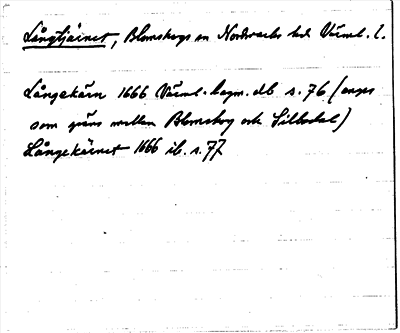 Långtjärnet, Blomskogs sn Nordmarks hd Värml. l.
Långekärn 1666 Värml. hagm. db s. 76 (anges
som gräns mellan Blomskog och Silbodal)
Långekärnet 1666 ib. s. 77